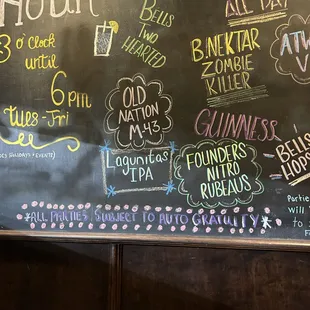 Hour
3 o'clock
until
6 pm
Tues-Fri
Bells
Two
Hearted
Old
Nation
M-43
Lagunitas
IPA
All Day
B. Nektar
Zombie
Killer
Guinness
Founders
Nitro
Rubeaus
Bells
Hops
*All parties subject to auto gratuity*